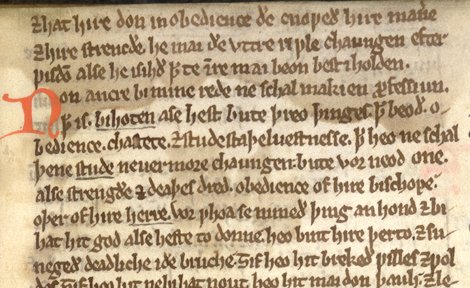 ⁊hat hire don in obedience
⁊hire strencðe. he mai ðe vttre riple chaungen efter
wisdom alse he isihð þ̄ te iñre mai beon best iholden.
Non ancre bi mine rede ne schal makien ꝓfessiun.
þ̄ is. bihoten ase hest bute þreo þinges. þ̄ beoð. o
bedience. chastete. ⁊ studestaþeluestnesse. þ̄ heo ne schal
þene stude neuer more chaungen. bute vor neod one.
alse strengðe ⁊ deaþes dred. obedience of hire bischope.
oþer of hire herre. vor hwoa se nimeð þing an hond ⁊ bi
hat hit god alse heste to donne. heo bint hire þerto. ⁊ su
negeð deadliche iðe bruche. ȝif heo hit brekeð willes ⁊ wol
des. ȝif heo hit nout heo hit mai don þauh. ⁊ le